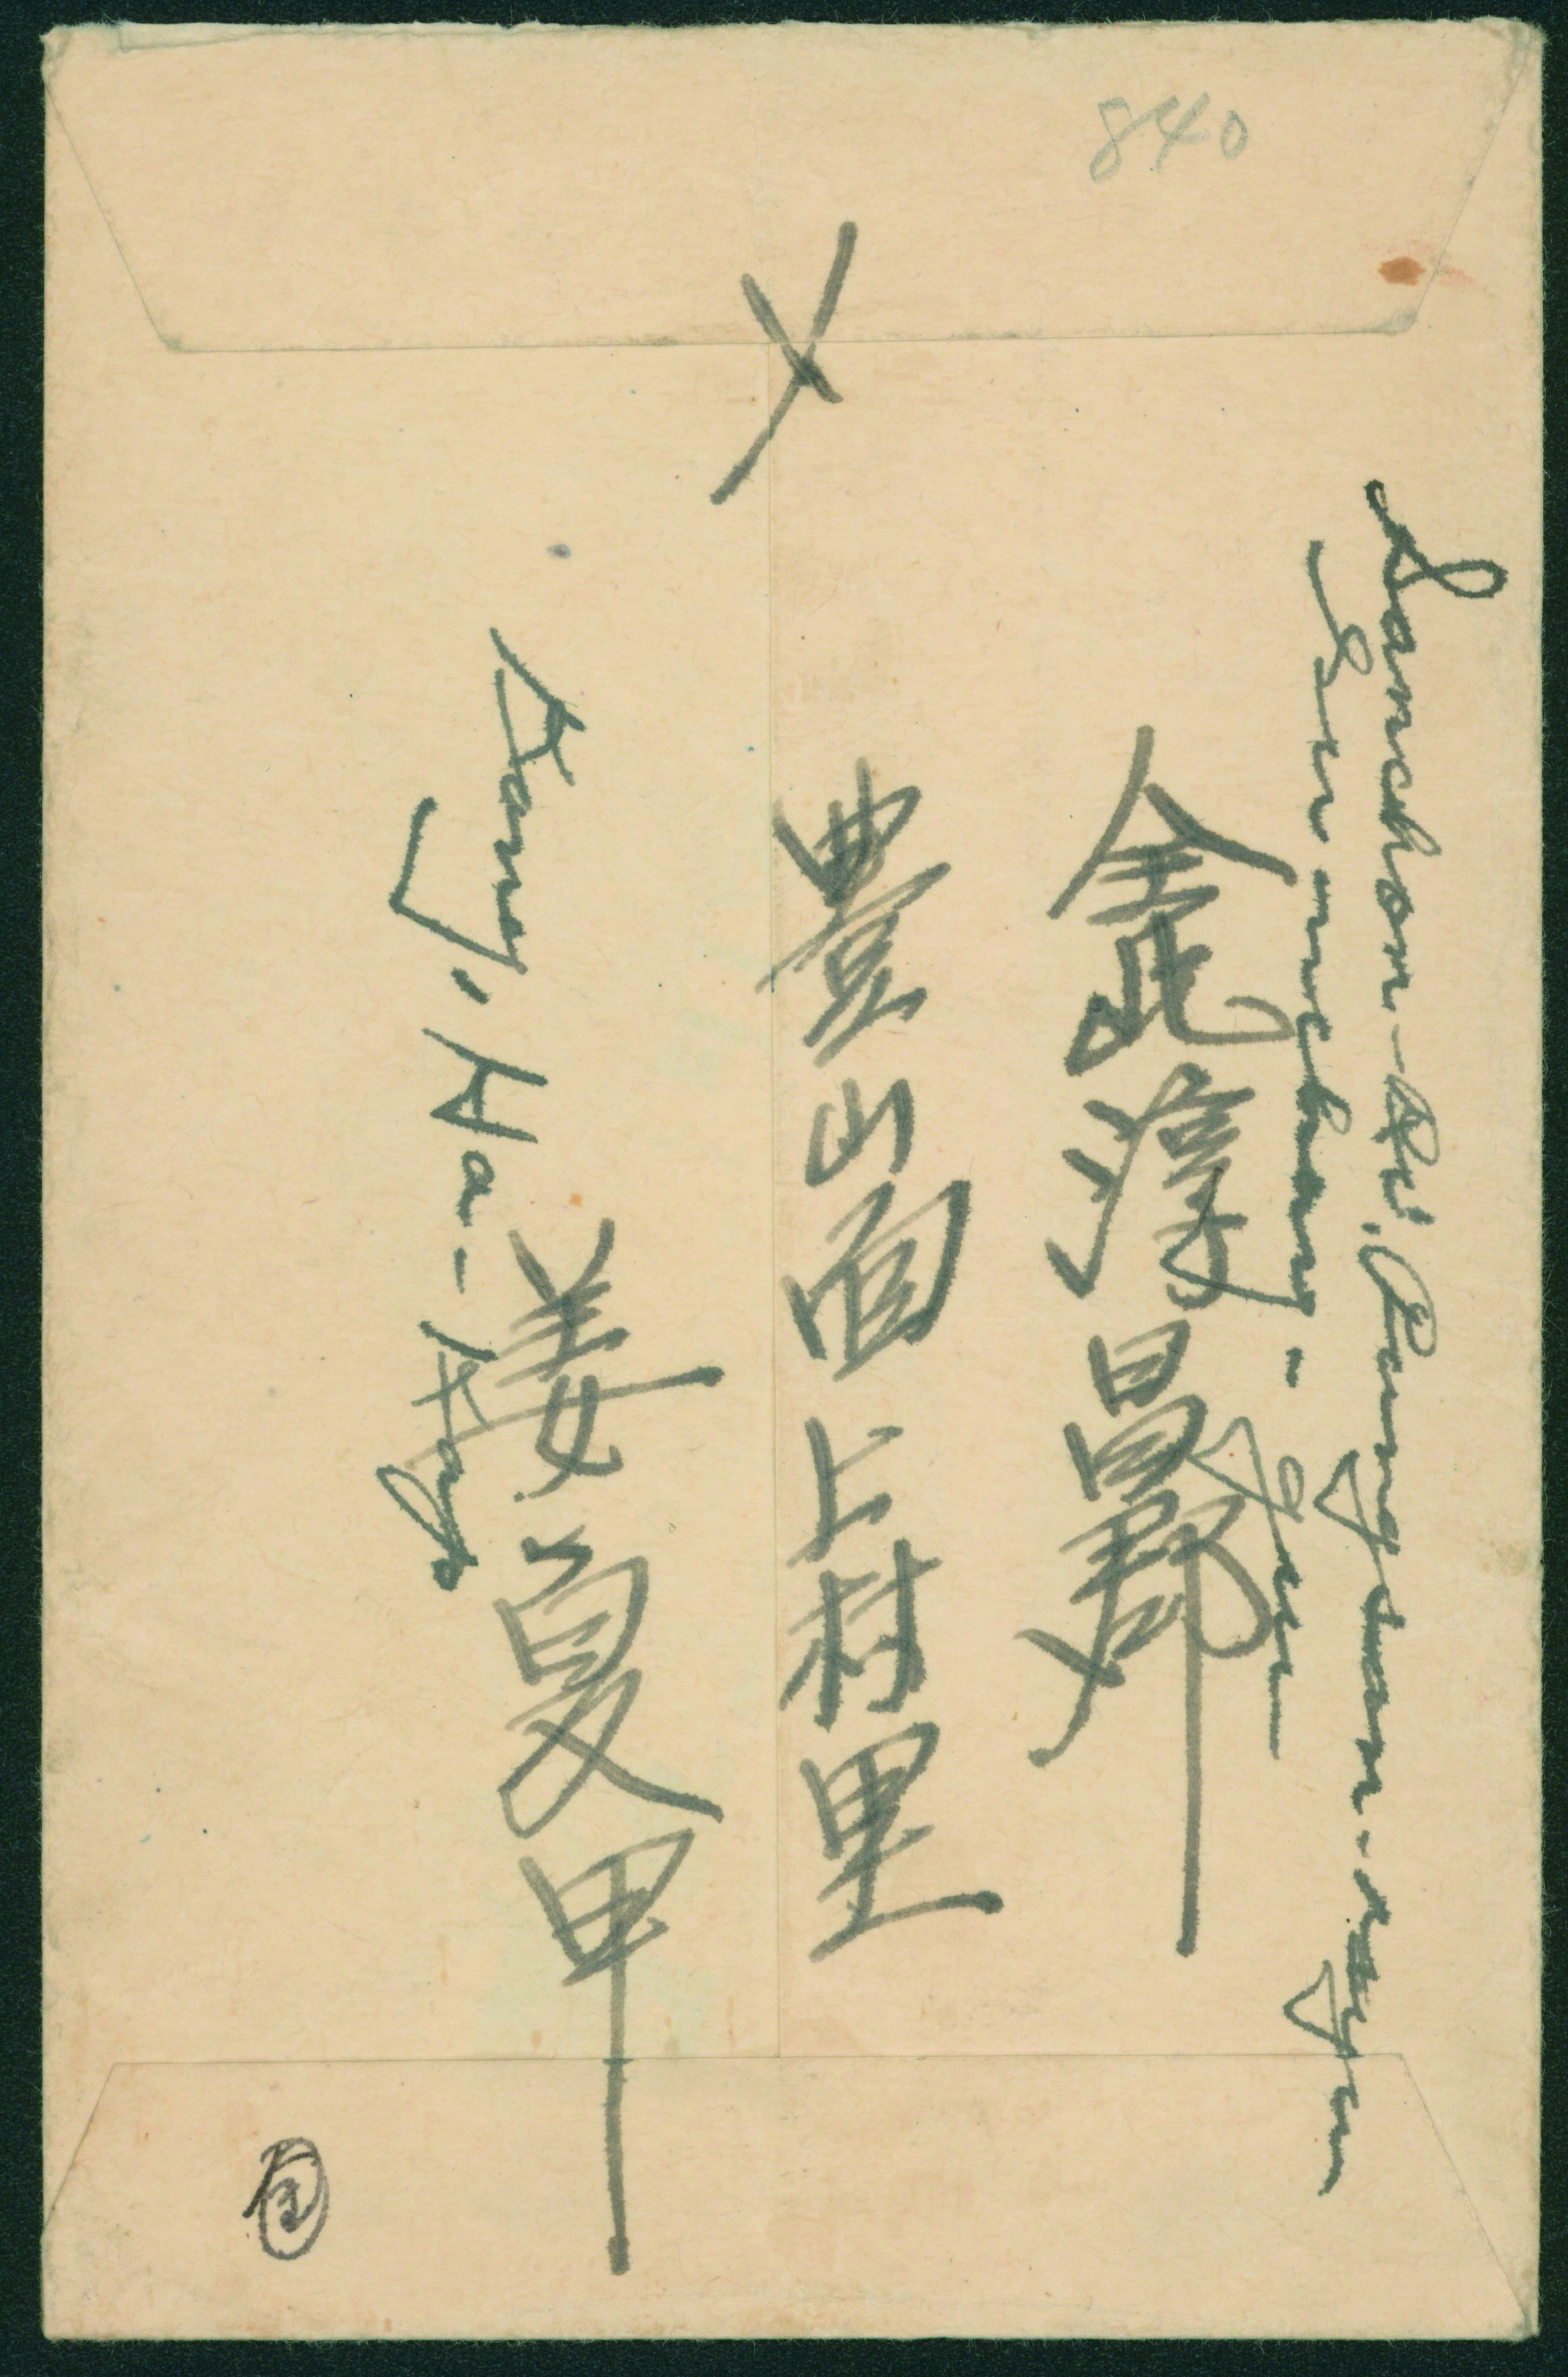 840
〆
Sanchon-Ni, Pungsan-myun
Sunchang-Gun
全北淳昌郡
豊山面上村里
姜夏甲
Kang, Ha-Kap